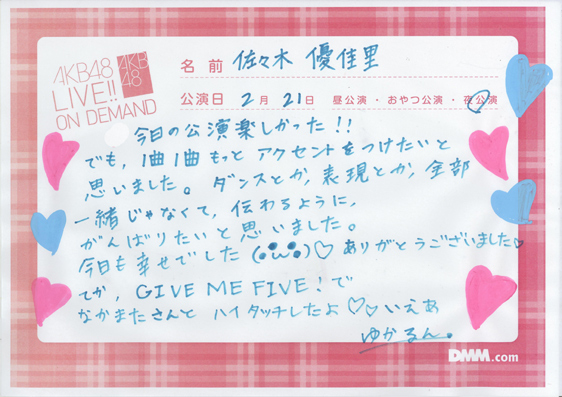 AKB48
LIVE!!
ON DEMAND
AKB
48
名前 佐々木 優佳里
公演日 2月 21日 昼公演・おやつ公演・夜公演
今日の公演楽しかった!!
でも、1曲1曲もっとアクセントをつけたいと
思いました。ダンスとか、表現とか、全部
一緒じゃなくて、伝わるように、
がんばりたいと思いました。
今日も幸せでした(・ω・)♡ ありがとうございました♡
てか、GIVE ME FIVE!で
なかまたさんと ハイタッチしたよ♡♡いえあ
ゆかるん。
DMM.com